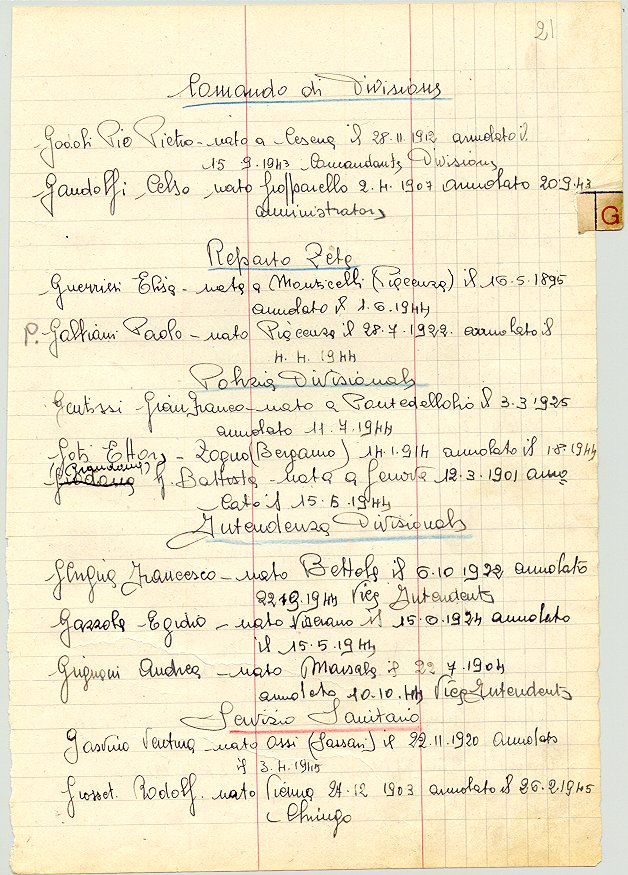 21
Comando di Divisione
Godoli Pio Pietro - nato a Cesena il 28.11.1912 arruolato il
15.9.1943 Comandante Divisione
Gandolfi Celso nato Gropparello 2.4.1907 arruolato 20.9.43
amministratore
G
Reparto Zeta
Guerrieri Elisa - nata a Monticelli (Piacenza) il 16.5.1895
arruolato il 1.6.1944
P. Galliani Paolo - nato Piacenza il 28.7.1922. arruolato il
4.4.1944
Polizia Divisionale
Gentissi GianFranco - nato a Pontedellolio il 3.3.1925
arruolato 11.7.1944
Goti Ettore - Zogno (Bergamo) 14.1.914 arruolato il 1.8.1944
G. Battista - nato a Genova 12.3.1901 arruo
lato il 15.6.1944
Intendenza Divisionale
Francesco - nato Bettola il 6.10.1922 arruolato
1944 Vice Intendente
Gazzola Egidio - nato il 15.6.1924 arruolato
il 15.5.1944
Grignani Andrea - nato Marsala il 22.7.1904
arruolato 10.10.44 Vice Intendente
Servizio Sanitario
Ventura - nato (Sassari) il 22.11.1920 arruolato
il 3.4.1945
Rodolf. nato Vienna 27.12.1903 arruolato il 26.2.1945
Chirurgo